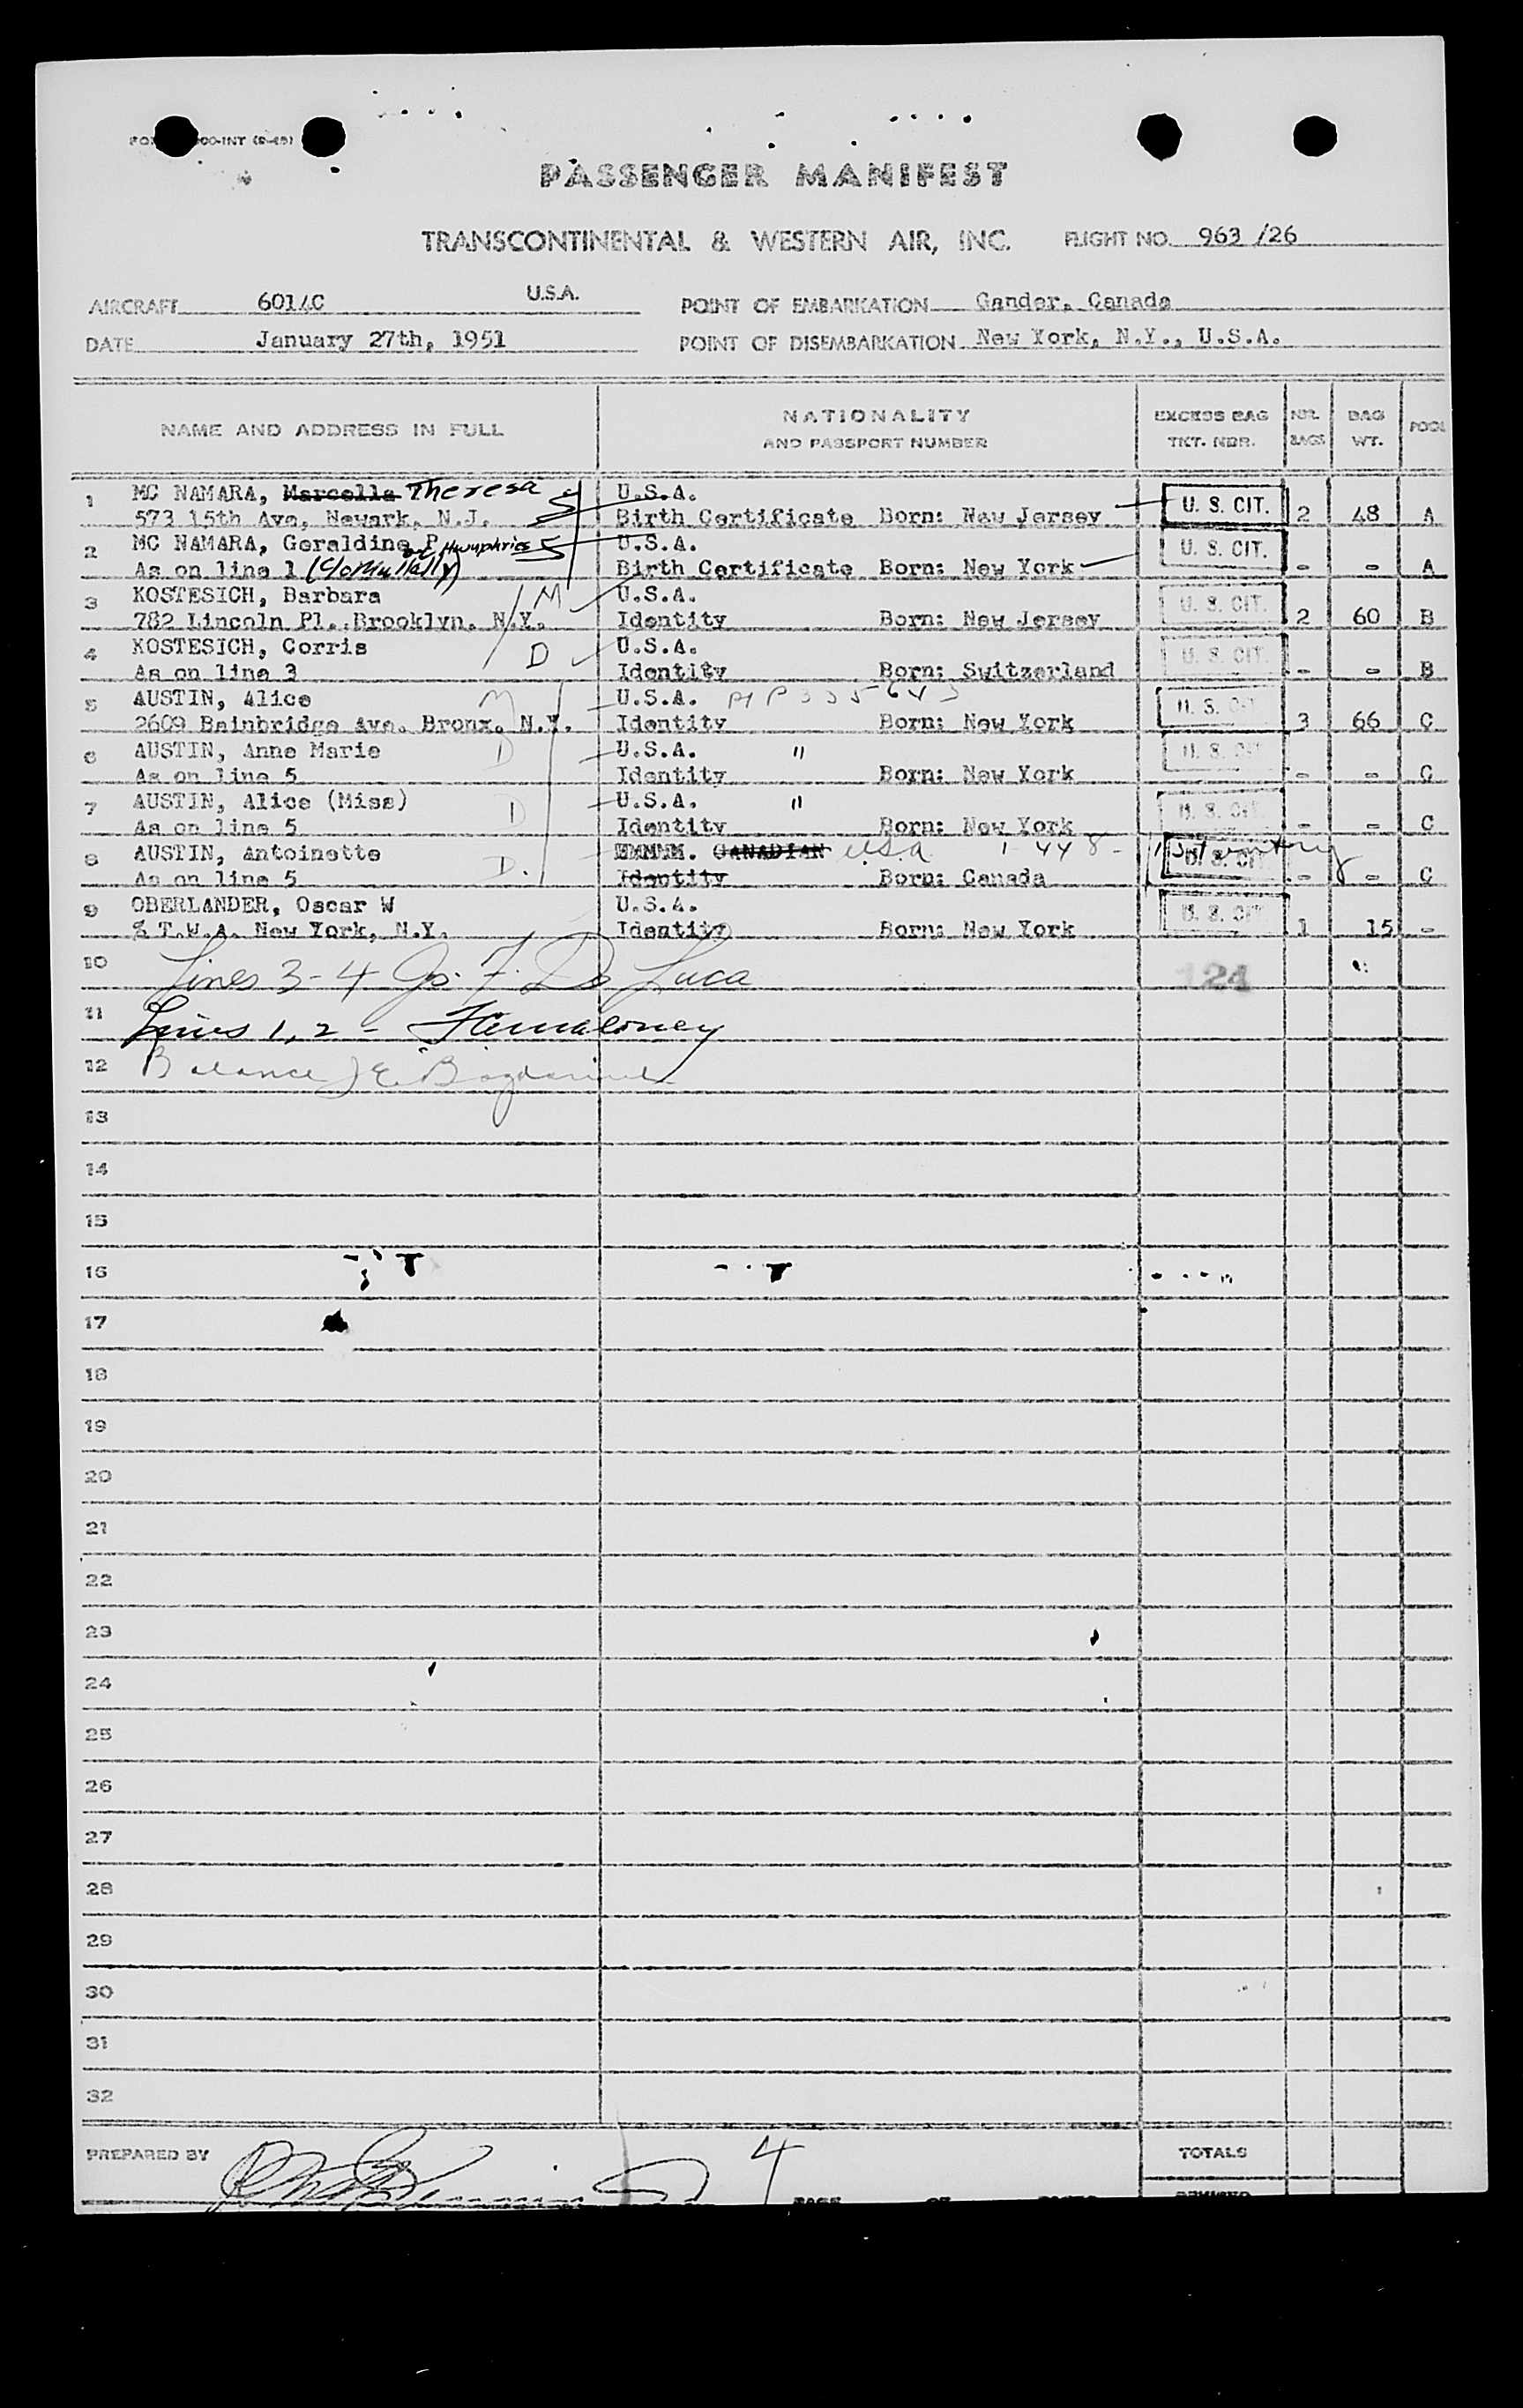 00-INT (2-45)
PASSENGER MANIFEST
TRANSCONTINENTAL & WESTERN AIR, INC. FLIGHT NO. 963 /26
AIRCRAFT 6014C U.S.A. POINT OF EMBARKATION Gander, Canada
DATE January 27th, 1951 POINT OF DISEMBARKATION New York, N.Y., U.S.A.
NAME AND ADDRESS IN FULL NATIONALITY AND PASSPORT NUMBER EXCESS BAG TKT. NBR. NBR. BAGS BAG WT. POOL
1 MC NAMARA, Marcella Theresa U.S.A.
573 15th Ave, Newark, N.J. Birth Certificate Born: New Jersey U. S. CIT. 2 48 A
2 MC NAMARA, Geraldine P U.S.A.
As on line 1 (c/o Mullally) Humphries Birth Certificate Born: New York U. S. CIT. - - A
3 KOSTESICH, Barbara M U.S.A.
782 Lincoln Pl. Brooklyn. N.Y. Identity Born: New Jersey U. S. CIT. 2 60 B
4 KOSTESICH, Corris D U.S.A.
As on line 3 Identity Born: Switzerland U. S. CIT. - - B
5 AUSTIN, Alice M U.S.A.
2609 Bainbridge Ave. Bronx. N.Y. Identity Born: New York U. S. CIT 3 66 C
6 AUSTIN, Anne Marie D U.S.A. "
As on line 5 Identity Born: New York U. S. CIT - - C
7 AUSTIN, Alice (Miss) D U.S.A. "
As on line 5 Identity Born: New York U. S. CIT. - - C
8 AUSTIN, Antoinette D. CANADIAN USA 1-448- 1st entry
As on line 5 Identity Born: Canada U. S. CIT - - C
9 OBERLANDER, Oscar W U.S.A.
% T.W.A. New York, N.Y. Identity Born: New York U. S. CIT 1 15 -
10 Lines 3-4 Jos. F. De Luca 124
11 Lines 1, 2 - Maloney
12 Balance
13
14
15
16
17
18
19
20
21
22
23
24
25
26
27
28
29
30
31
32
PREPARED BY 4 TOTALS
PAGE OF PAGES